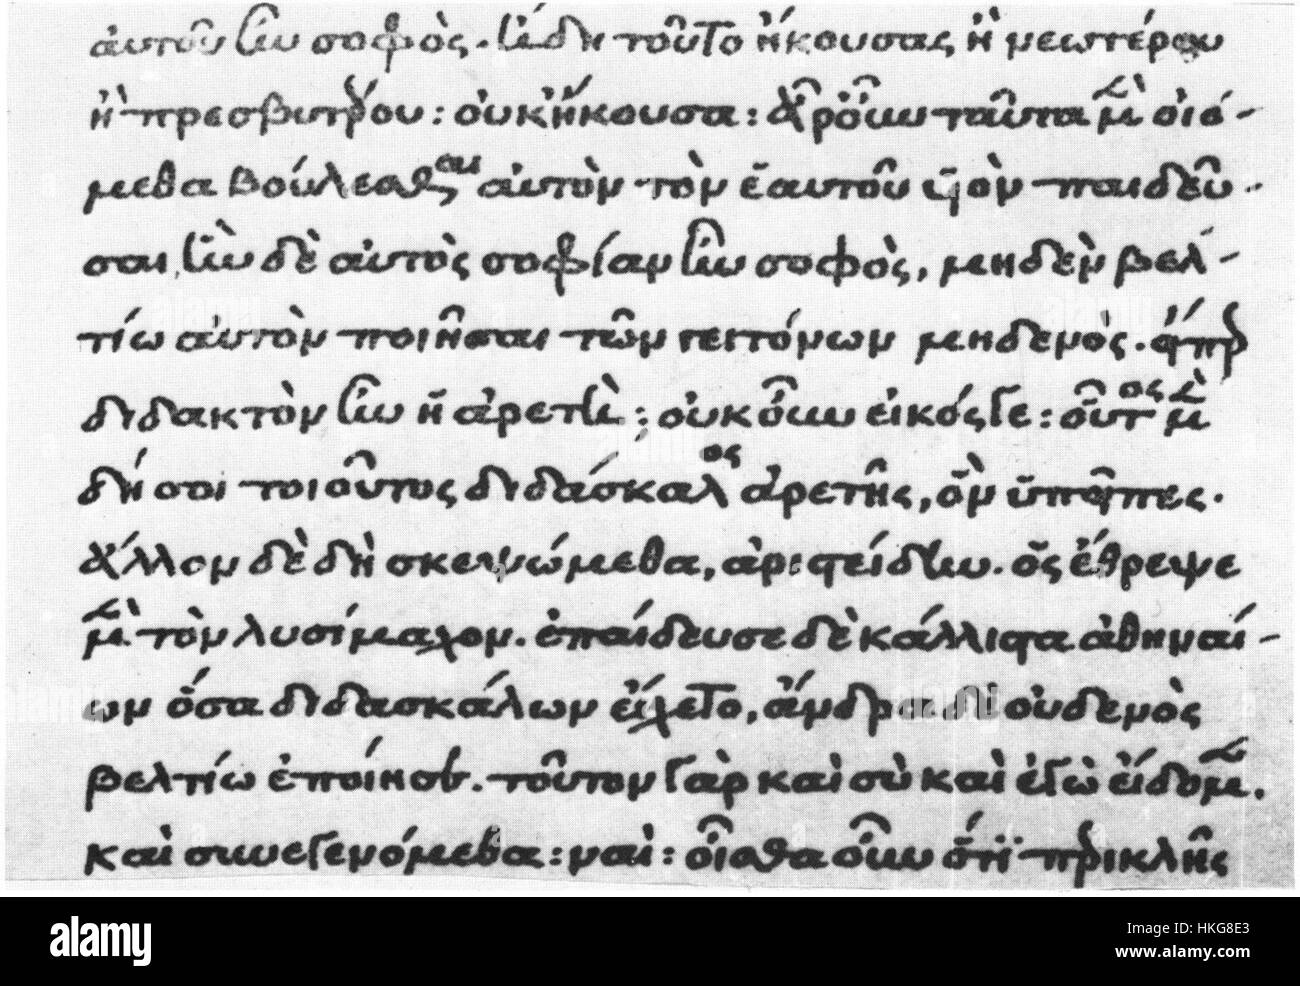 αὐτοῦ ἦν σοφὸς. ἤδη τοῦτο ἤκουσας ἢ νεωτέρου
ἢ πρεσβυτέρου: οὐκ ἤκουσα: ἆρ' οὖν ταῦτα μὲν οἰό-
μεθα βούλεσθαι αὐτὸν τὸν ἑαυτοῦ ὑὸν παιδεῦ-
σαι, ἣν δὲ αὐτὸς σοφίαν ἦν σοφὸς, μηδὲν βελ-
τίω αὐτὸν ποιῆσαι τῶν γειτόνων μηδενὸς. εἴπερ
διδακτὸν ἦν ἡ ἀρετὴ: οὐκ οὖν εἰκός γε: οὗτος μὲν
δή σοι τοιοῦτος διδάσκαλος ἀρετῆς, ὃν ὑπεῖπες.
ἄλλον δὲ δὴ σκεψώμεθα, ἀριστείδην. ὃς ἔθρεψε
μὲν τὸν λυσίμαχον. ἐπαίδευσε δὲ κάλλιστα ἀθηναί-
ων ὅσα διδασκάλων εἴχετο, ἄνδρα δὲ οὐδενὸς
βελτίω ἐποίησεν. τοῦτον γὰρ καὶ σὺ καὶ ἐγὼ εἴδομεν.
καὶ συνεγενόμεθα: ναὶ: οἶσθα οὖν ὅτι περικλῆς
alamy
HKG8E3
www.alamy.com